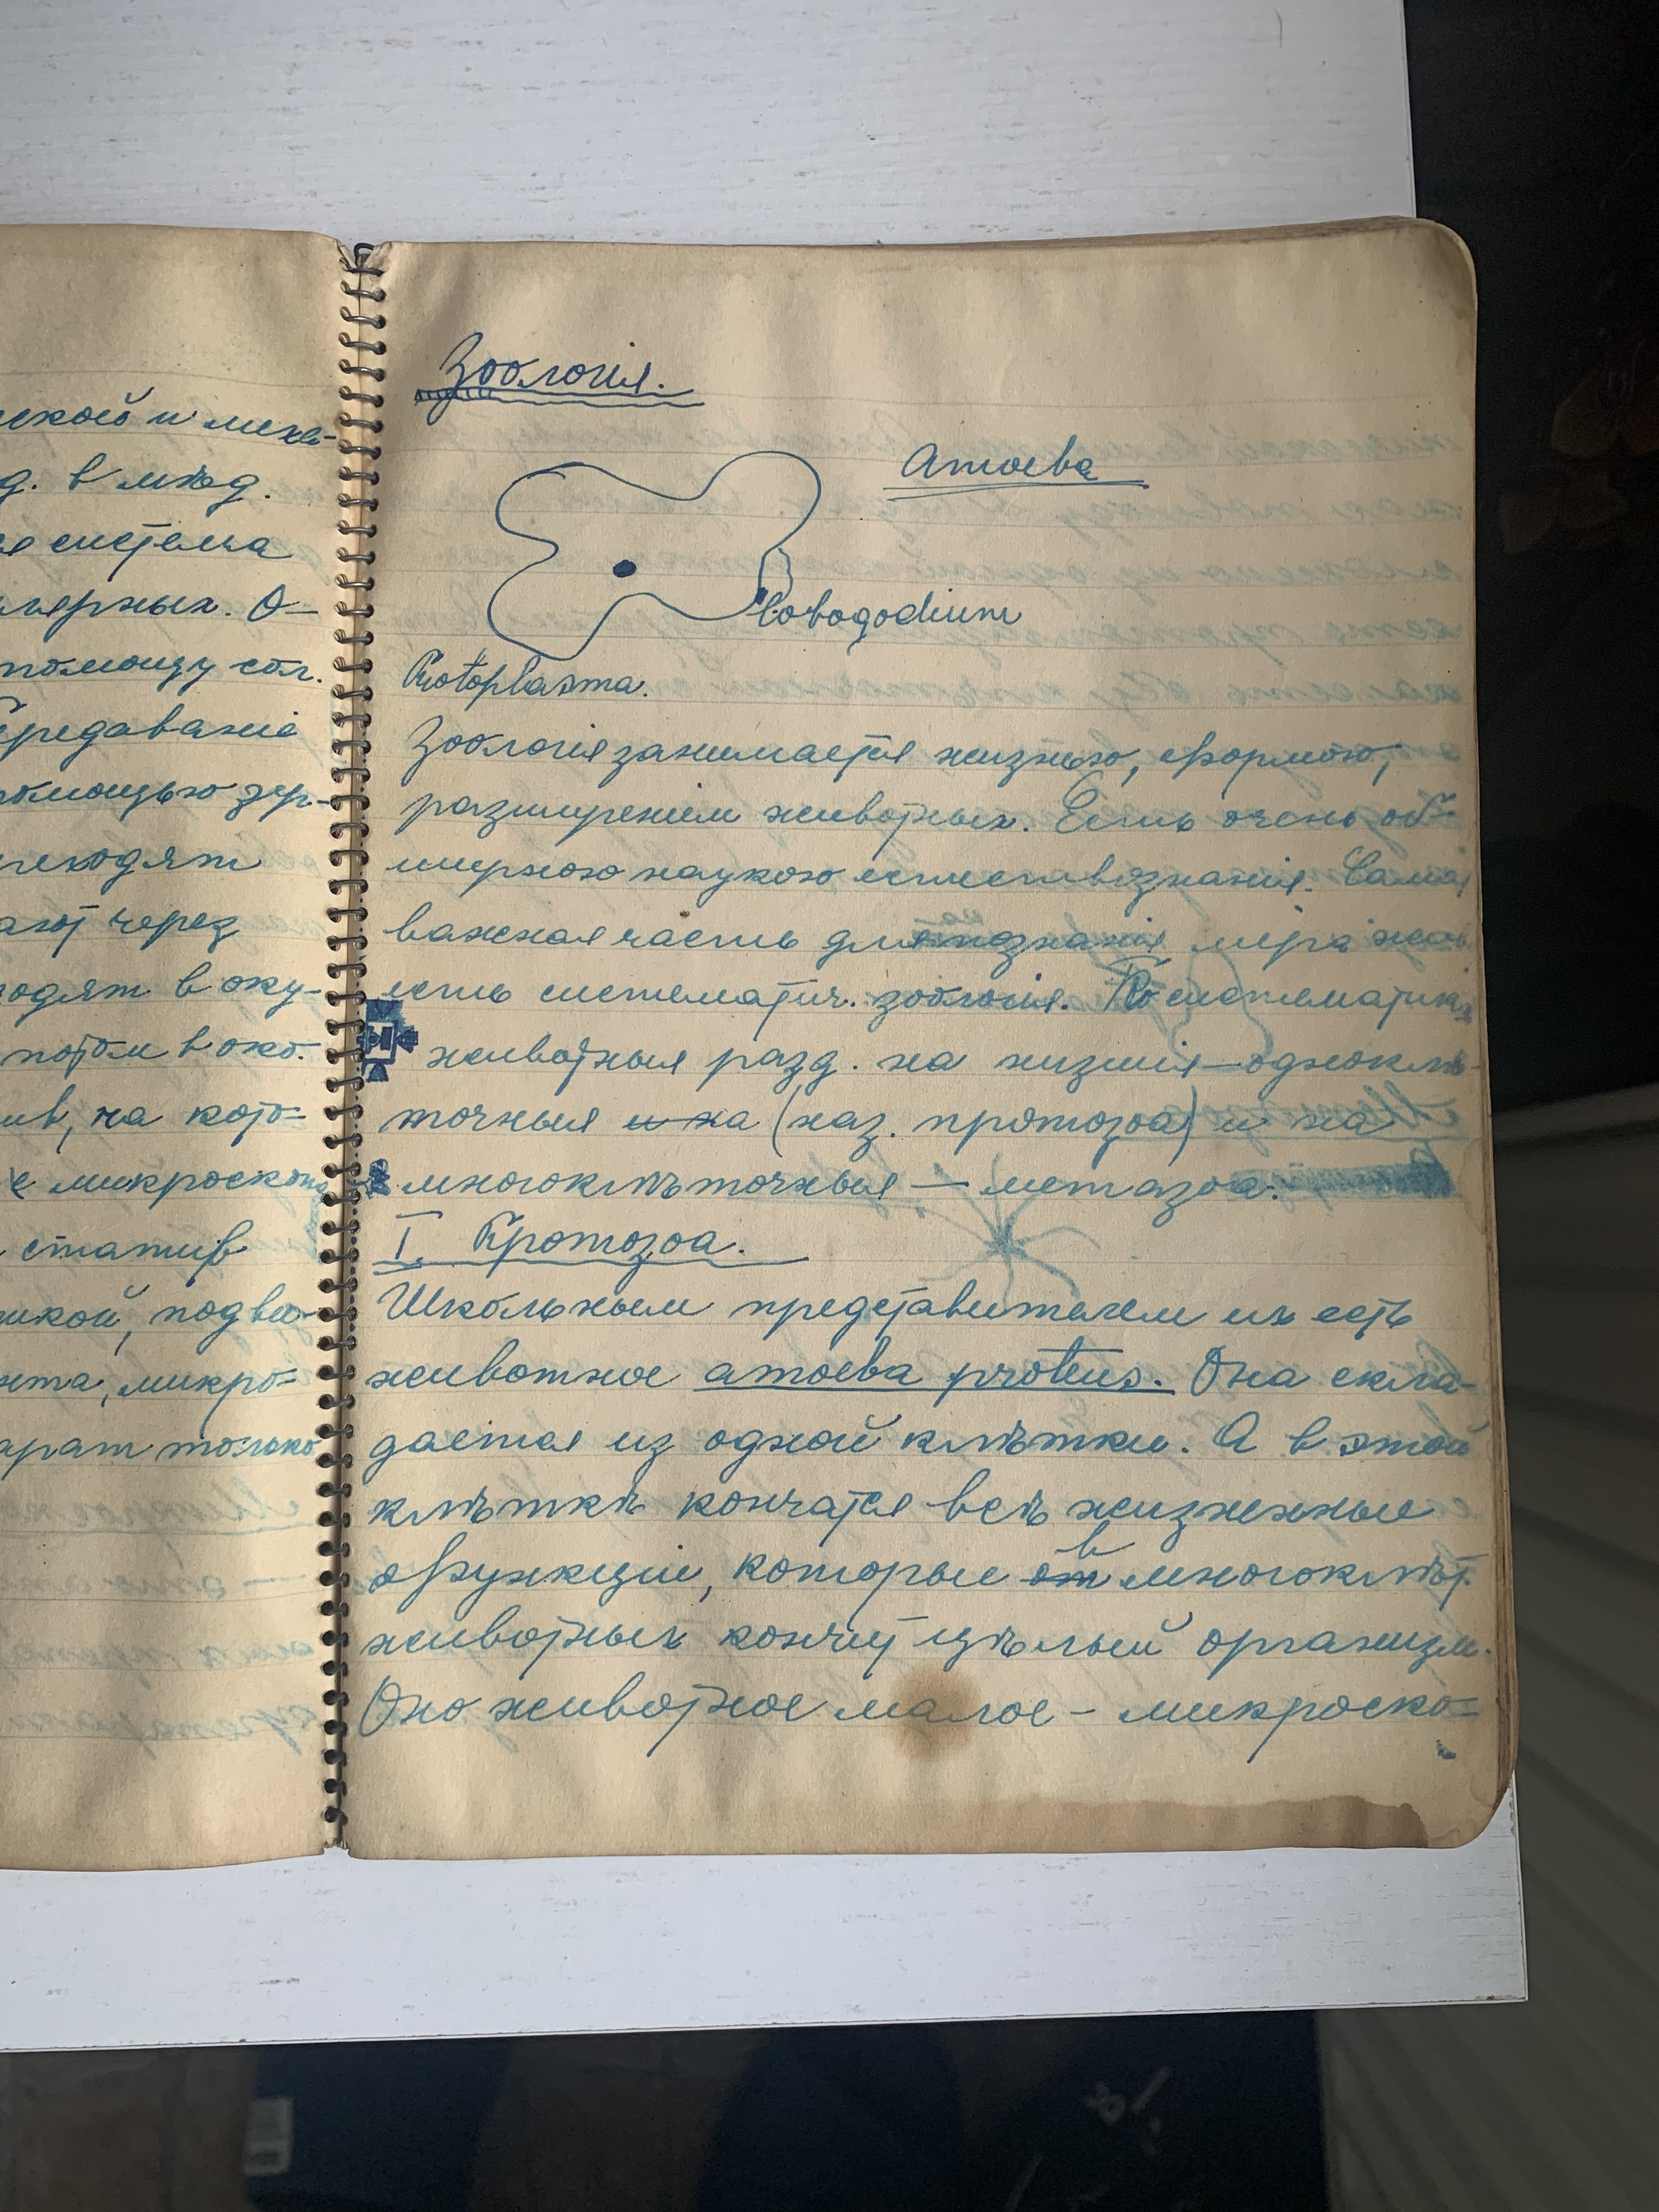 ской и меха-
д. в мѣд.
я система
мерных. О-
помощу сол.
Передаванiе
помощью зер-
реходят
ают через
ходят в оку-
потом в око.
ив, на кото-
микроскопа
статив
икой, подвео-
нта, микро-
арат только
Зоологiя.
Amoeba
lobogodium
Protoplasma.
Зоологiя занимается жизнью, формою,
разширенiем животных. Есть очень об-
ширною наукою естествознанiя. Самая
важная часть для познанiя мiра жив.
есть системат. зоологiя. По систематикѣ
животныя разд. на низшiя – одноклѣ-
точныя и на (наз. протозоа) и на
многоклѣточныя – метазоа.
I. Протозоа.
Школьным представителем их есть
животное amoeba proteus. Она скла-
дается из одной клѣтки. А в этой
клѣткѣ кончатся всѣ жизненные
функцiи, которые от в многоклѣт.
животных кончит цѣлый организм.
Оно животное малое – микроско-